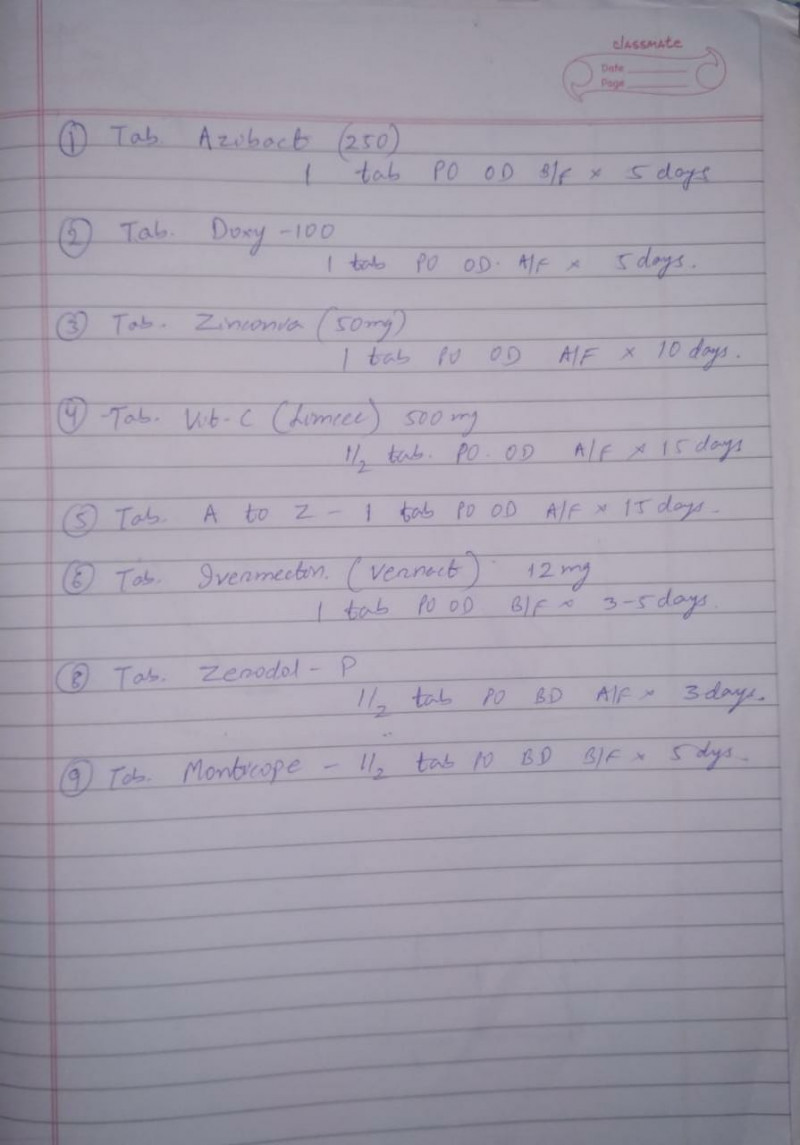 classmate
Date
Page
① Tab. Azibact (250)
1 tab PO OD B/F × 5 days
② Tab. Doxy -100
1 tab PO OD. A/F × 5 days.
③ Tab. Zinconia (50mg)
1 tab PO OD A/F × 10 days.
④ Tab. Vit-C (Limcee) 500 mg
1/2 tab. PO. OD A/F × 15 days
⑤ Tab. A to Z - 1 tab PO OD A/F × 15 days.
⑥ Tab. Ivermectin. (Vermact) 12 mg
1 tab PO OD B/F × 3-5 days.
⑧ Tab. Zerodol - P
1/2 tab PO BD A/F × 3 days.
⑨ Tab. Monticope - 1/2 tab PO BD B/F × 5 dys.